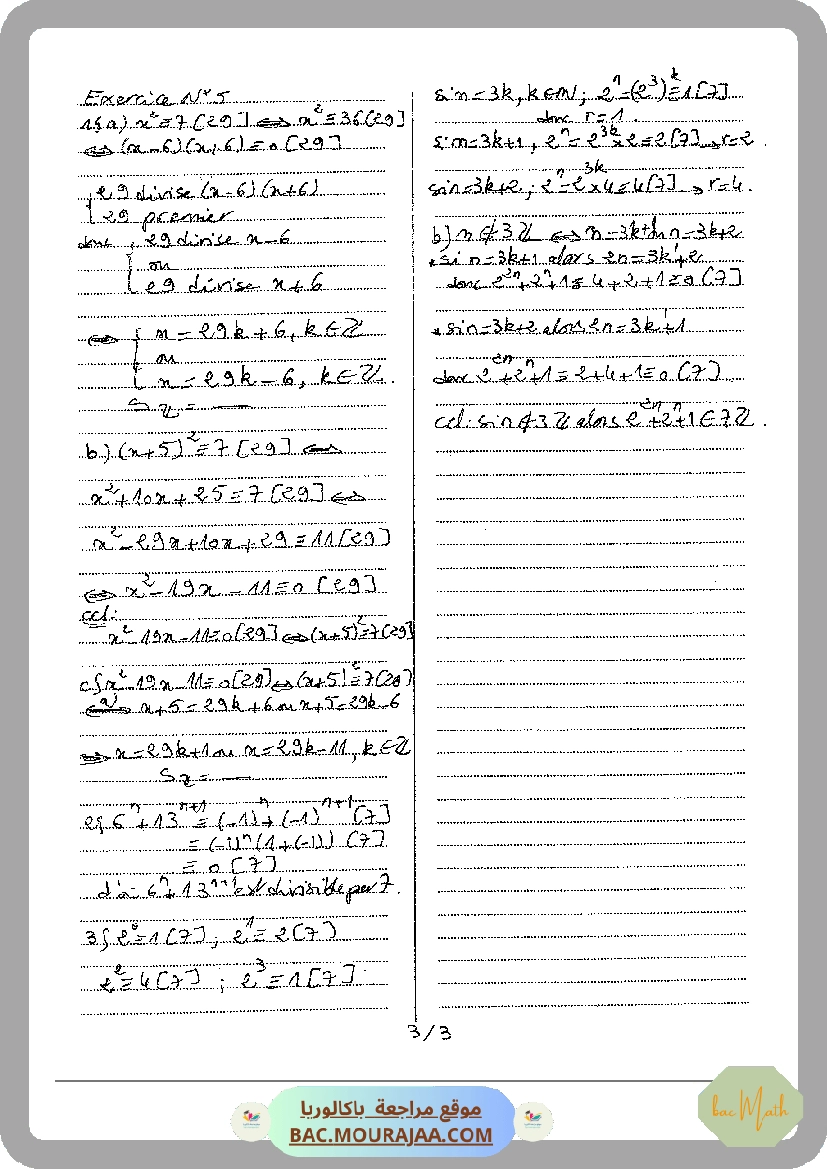 Exercice N°5
1§a) x² ≡ 7 [29] ⟺ x² ≡ 36 [29]
⟺ (x-6)(x+6) ≡ 0 [29]
{ 29 divise (x-6)(x+6)
29 premier
donc { 29 divise x-6
ou
29 divise x+6
⟺ { x = 29k + 6, k ∈ ℤ
ou
x = 29k - 6, k ∈ ℤ.
Sℤ = —
b) (x+5)² ≡ 7 [29] ⟺
x² + 10x + 25 ≡ 7 [29] ⟺
x² - 29x + 10x + 29 ≡ 11 [29]
⟺ x² - 19x - 11 ≡ 0 [29]
ccl:
x² - 19x - 11 ≡ 0 [29] ⟺ (x+5)² ≡ 7 [29]
c§ x² - 19x - 11 ≡ 0 [29] ⟺ (x+5)² ≡ 7 [29]
⟺ x+5 = 29k+6 ou x+5 = 29k-6
⟺ x = 29k+1 ou x = 29k-11, k ∈ ℤ
Sℤ = —
2§ 6ⁿ + 13ⁿ⁺¹ ≡ (-1)ⁿ + (-1)ⁿ⁺¹ [7]
≡ (-1)ⁿ (1+(-1)) [7]
≡ 0 [7]
6ⁿ + 13ⁿ⁺¹ est divisible par 7.
3§ 2⁰ ≡ 1 [7] ; 2¹ ≡ 2 [7]
2² ≡ 4 [7] ; 2³ ≡ 1 [7].
si n = 3k, k ∈ ℕ ; 2ⁿ = (2³)ᵏ ≡ 1 [7]
donc r = 1.
si n = 3k+1, 2ⁿ = 2³ᵏ × 2 ≡ 2 [7] → r = 2.
si n = 3k+2 ; 2ⁿ = 2³ᵏ × 4 ≡ 4 [7] → r = 4.
b) n ∉ 3ℤ ⟺ n = 3k+1 ou n = 3k+2
* si n = 3k+1 alors 2n = 3k'+2
donc 2²ⁿ + 2ⁿ + 1 ≡ 4 + 2 + 1 ≡ 0 [7]
* si n = 3k+2 alors 2n = 3k'+1
donc 2²ⁿ + 2ⁿ + 1 ≡ 2 + 4 + 1 ≡ 0 [7]
ccl: si n ∉ 3ℤ alors 2²ⁿ + 2ⁿ + 1 ∈ 7ℤ.
3/3
موقع مراجعة باكالوريا
BAC.MOURAJAA.COM
bac Math